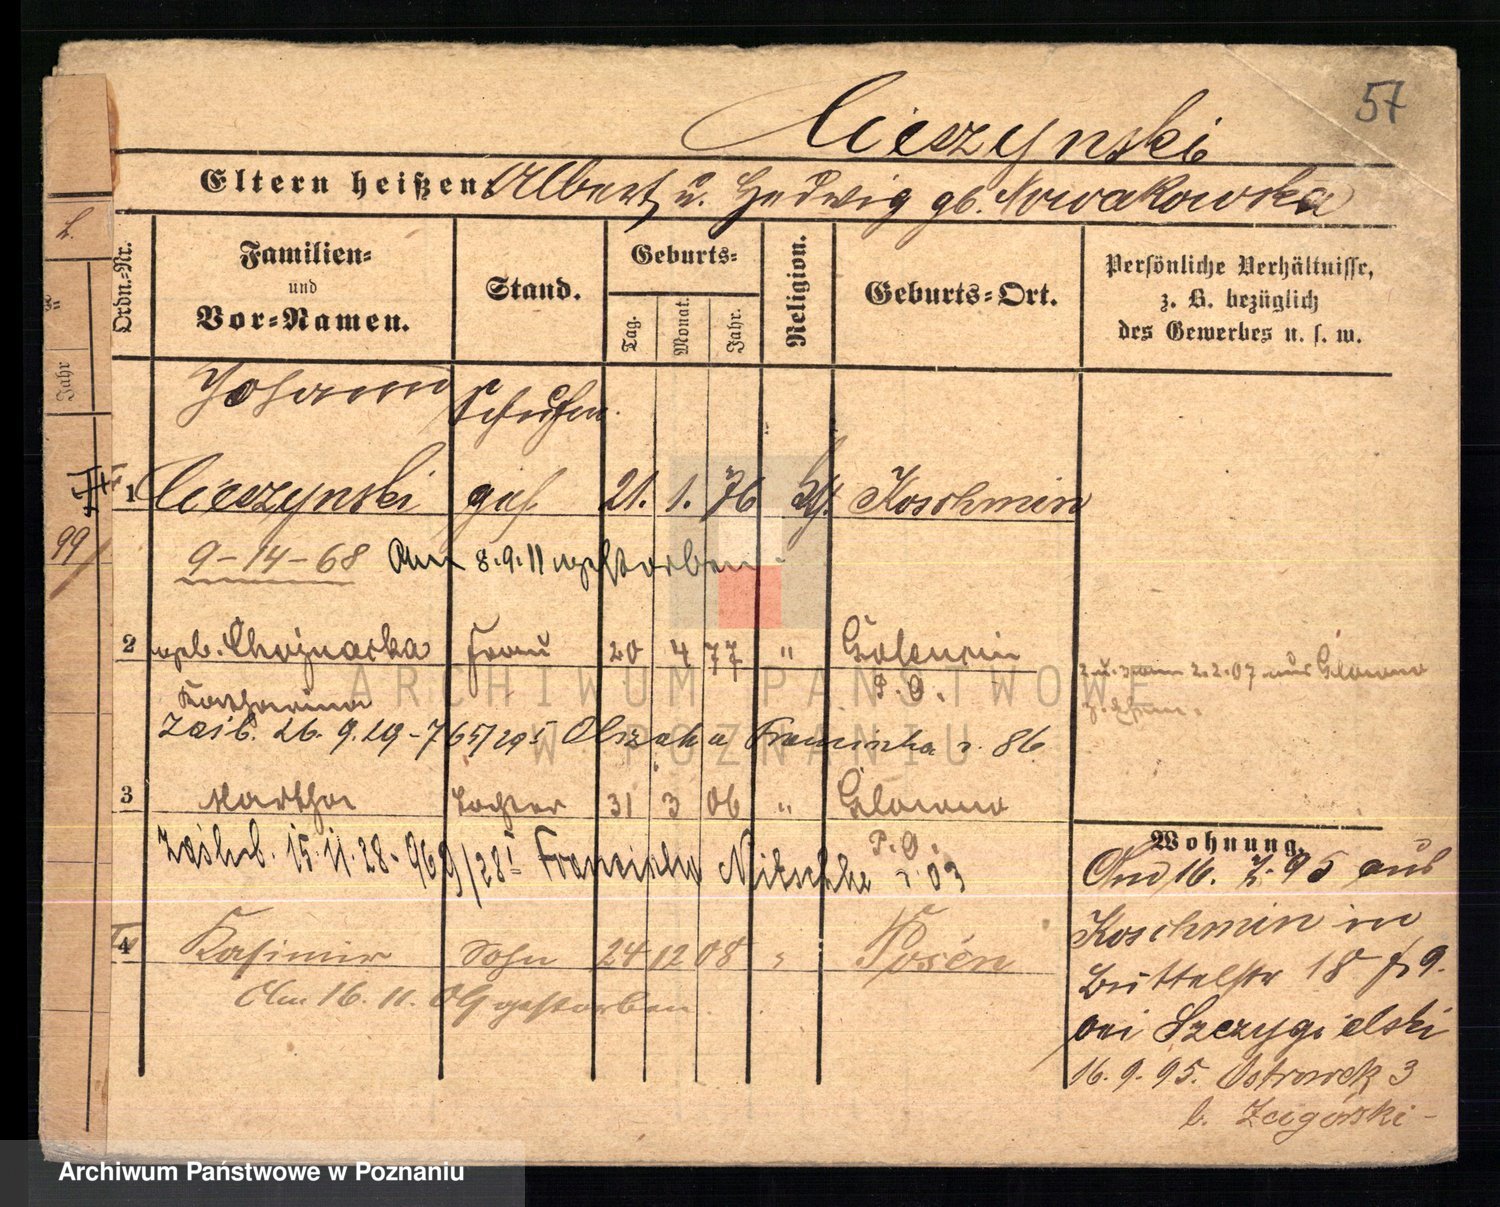 57
Cieszynski
Eltern heißen: Albert u. Hedwig gb. Nowakowska
Ordn.-Nr.
Familien-
und
Vor-Namen.
Stand.
Geburts-
Tag.
Monat.
Jahr.
Religion.
Geburts-Ort.
Persönliche Verhältnisse,
z. B. bezüglich
des Gewerbes u. s. w.
Johann
1 Cieszynski 21. 1. 76 Koschmin
9-14-68 Am 8.9.11 gestorben
2 geb. Frau 20 4 77 "
Katharina P. O.
26. 9. 29 - 765/295 r. 86
3 Martha Tochter 31 3 06 "
P. O.
15. 11. 28 - 969/28 Nitschke r. 03
4 Kasimir Sohn 24 12 08 " Posen
Am 16. 11. 09 gestorben.
2 u. 3 am 2.2.07 aus
Wohnung.
Am 16. 7. 95 aus
Koschmin in
Büttelstr 18
bei Szczygielski
16. 9. 95. Ostrowek 3
b. Zagórski -
Jahr
99
ARCHIWUM PAŃSTWOWE
W POZNANIU
Archiwum Państwowe w Poznaniu